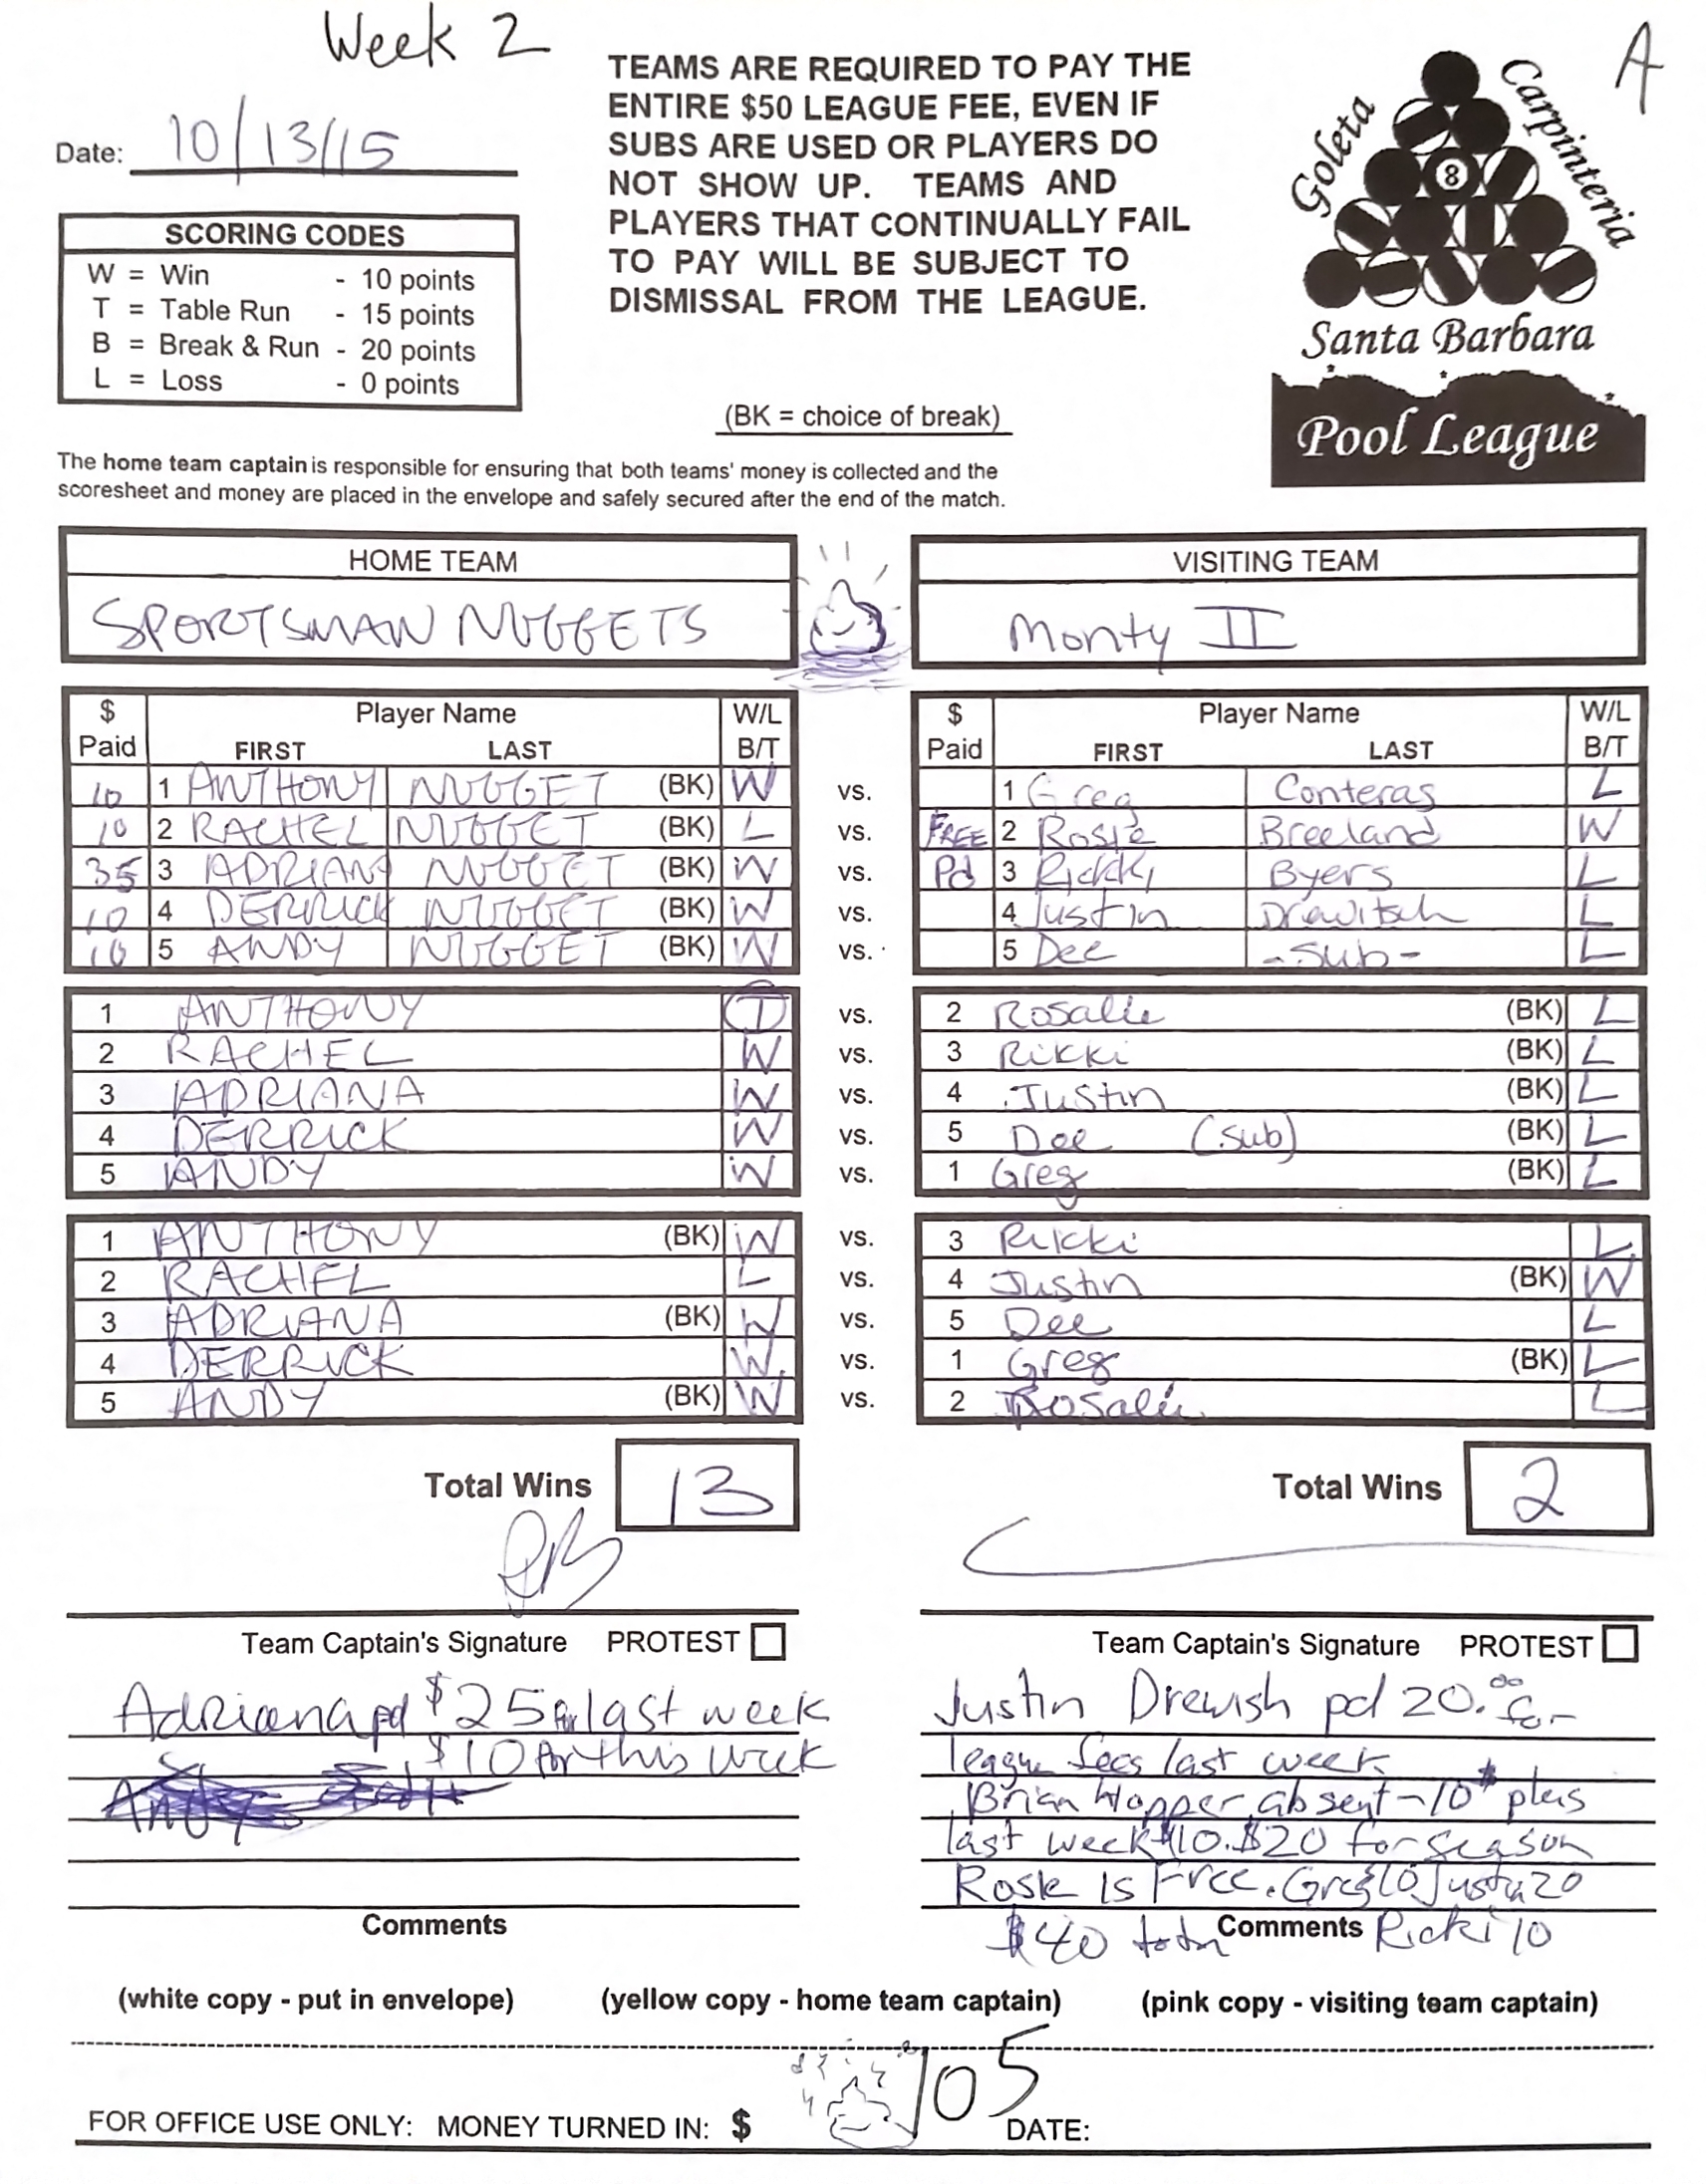 Week 2
A
Date: 10/13/15
TEAMS ARE REQUIRED TO PAY THE
ENTIRE $50 LEAGUE FEE, EVEN IF
SUBS ARE USED OR PLAYERS DO
NOT SHOW UP. TEAMS AND
PLAYERS THAT CONTINUALLY FAIL
TO PAY WILL BE SUBJECT TO
DISMISSAL FROM THE LEAGUE.
Goleta
Carpinteria
8
Santa Barbara
Pool League
SCORING CODES
W = Win - 10 points
T = Table Run - 15 points
B = Break & Run - 20 points
L = Loss - 0 points
(BK = choice of break)
The home team captain is responsible for ensuring that both teams' money is collected and the
scoresheet and money are placed in the envelope and safely secured after the end of the match.
HOME TEAM VISITING TEAM
SPORTSMAN NUGGETS Monty II
$ Paid Player Name FIRST LAST W/L B/T $ Paid Player Name FIRST LAST W/L B/T
10 1 ANTHONY NUGGET (BK) W vs. 1 Greg Conteras L
10 2 RACHEL NUGGET (BK) L vs. FREE 2 Rosie Breeland W
35 3 ADRIANA NUGGET (BK) W vs. Pd 3 Rickki Byers L
10 4 DERRICK NUGGET (BK) W vs. 4 Justin Drewitsh L
10 5 ANDY NUGGET (BK) W vs. 5 Dee - Sub - L
1 ANTHONY T vs. 2 Rosalie (BK) L
2 RACHEL W vs. 3 Rikki (BK) L
3 ADRIANA W vs. 4 Justin (BK) L
4 DERRICK W vs. 5 Dee (sub) (BK) L
5 ANDY W vs. 1 Greg (BK) L
1 ANTHONY (BK) W vs. 3 Rikki L
2 RACHEL L vs. 4 Justin (BK) W
3 ADRIANA (BK) W vs. 5 Dee L
4 DERRICK W vs. 1 Greg (BK) L
5 ANDY (BK) W vs. 2 Rosalie L
Total Wins 13 Total Wins 2
Team Captain's Signature PROTEST Team Captain's Signature PROTEST
Adriana pd $25 for last week
$10 for this week
Andy
Comments
Justin Drewish pd 20.00 for
league fees last week
Brian Hopper absent - 10$ plus
last week $10. $20 for season
Rosie is Free. Greg 10 Justin 20
$40 total Comments Ricki 10
(white copy - put in envelope) (yellow copy - home team captain) (pink copy - visiting team captain)
FOR OFFICE USE ONLY: MONEY TURNED IN: $ 105 DATE: